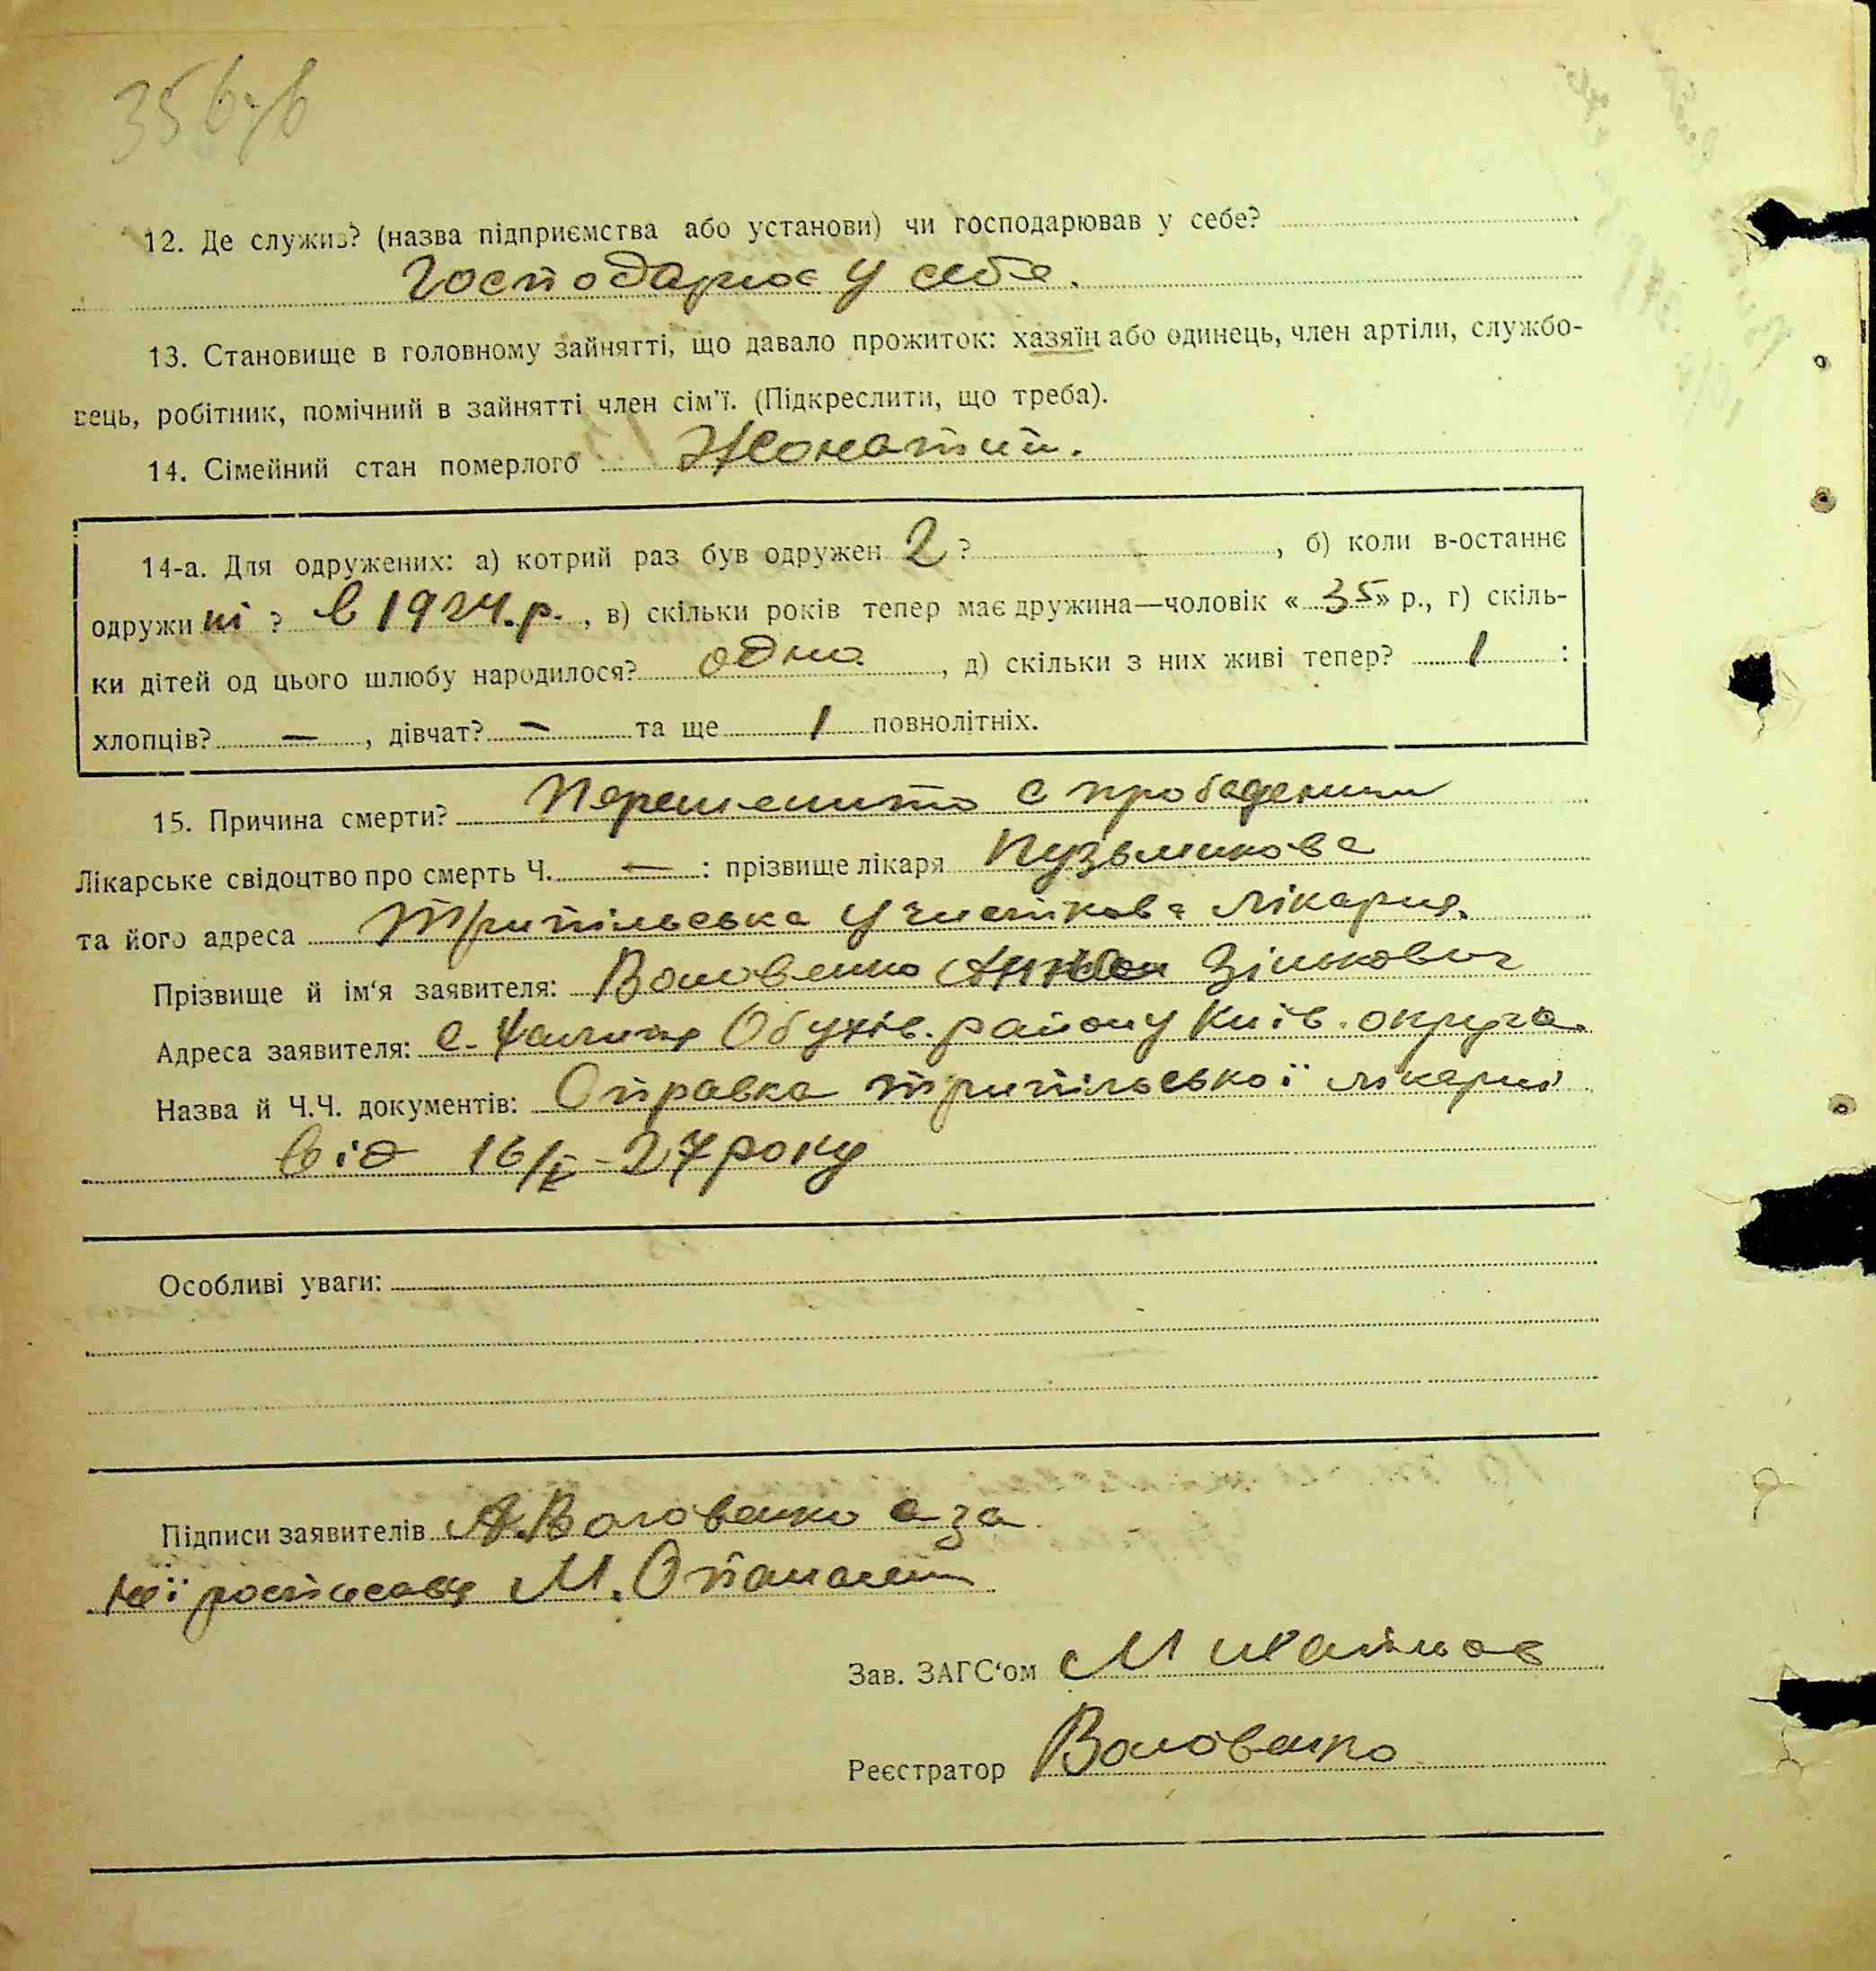 12. Де служив? (назва підприємства або установи) чи господарював у себе?
Господарює у себе.
13. Становище в головному зайнятті, що давало прожиток: хазяїн або одинець, член артіли, службо-
вець, робітник, помічний в зайнятті член сім'ї. (Підкреслити, що треба).
14. Сімейний стан померлого Жонатий.
14-а. Для одружених: а) котрий раз був одружен 2 ?, б) коли в-останнє
одружи ? в 1924.р., в) скільки років тепер має дружина—чоловік «35» р., г) скіль-
ки дітей од цього шлюбу народилося? одно, д) скільки з них живі тепер? 1 :
хлопців? —, дівчат? — та ще 1 повнолітніх.
15. Причина смерти? с прободением
Лікарське свідоцтво про смерть Ч. — : прізвище лікаря
та його адреса Трипільська Участкова лікарня.
Прізвище й ім'я заявителя: Воловенко Зінькович
Адреса заявителя: с. Обухів. району Київ. округа.
Назва й Ч.Ч. документів: Справка трипільської лікарні
від 16/ -27 року
Особливі уваги:
Підписи заявителів А.Воловенко а за
неї М.
Зав. ЗАГС'ом
Реєстратор Воловенко